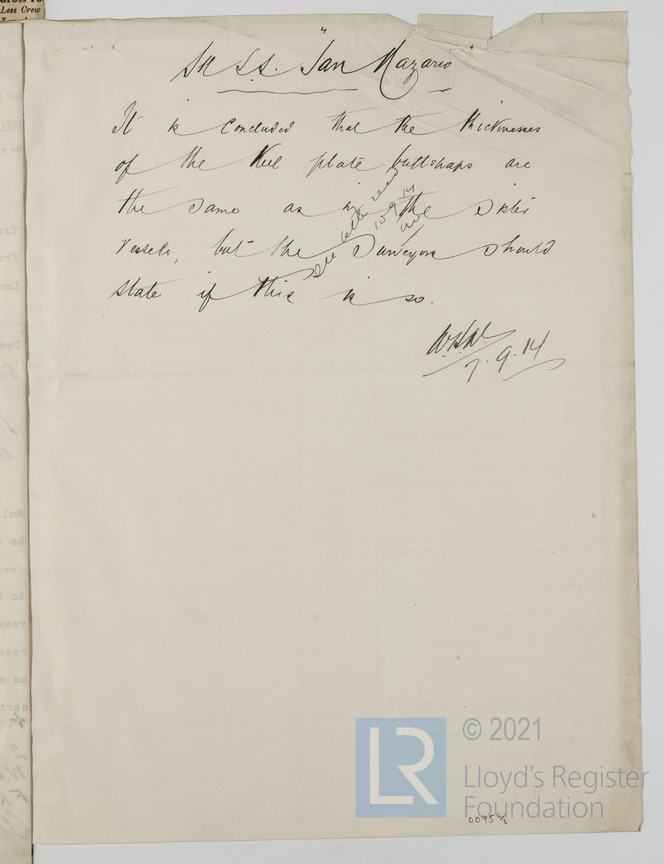 Less Crew
S.S. "San Nazario"
It is concluded that the thicknesses
of the Keel plate buttstraps are
the same as in the sister
vessels, but the Surveyors should
state if this is so.
See letter
10.9.14
7.9.14
LR
© 2021
Lloyd's Register
Foundation